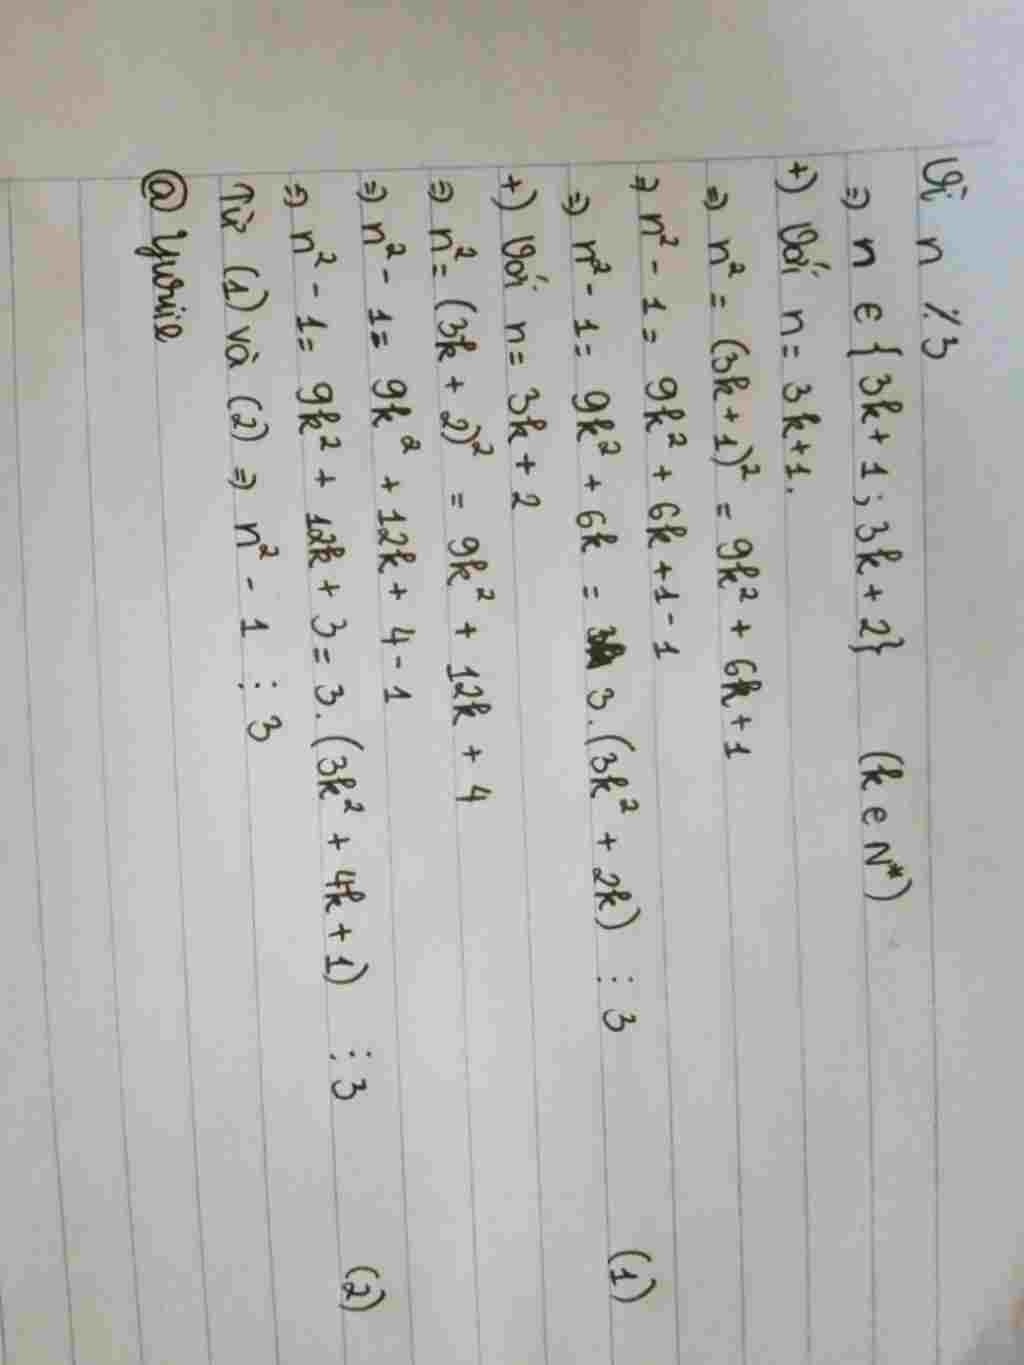 Vì n ⋮̸ 3
=) n ∈ {3k+1; 3k+2} (k ∈ N*)
+) Với n = 3k+1.
=) n² = (3k+1)² = 9k² + 6k + 1
=) n² - 1 = 9k² + 6k + 1 - 1
=) n² - 1 = 9k² + 6k = 3.(3k² + 2k) ⋮ 3 (1)
+) Với n = 3k + 2
=) n² = (3k + 2)² = 9k² + 12k + 4
=) n² - 1 = 9k² + 12k + 4 - 1
=) n² - 1 = 9k² + 12k + 3 = 3.(3k² + 4k + 1) ⋮ 3 (2)
Từ (1) và (2) =) n² - 1 ⋮ 3
@Yuriie